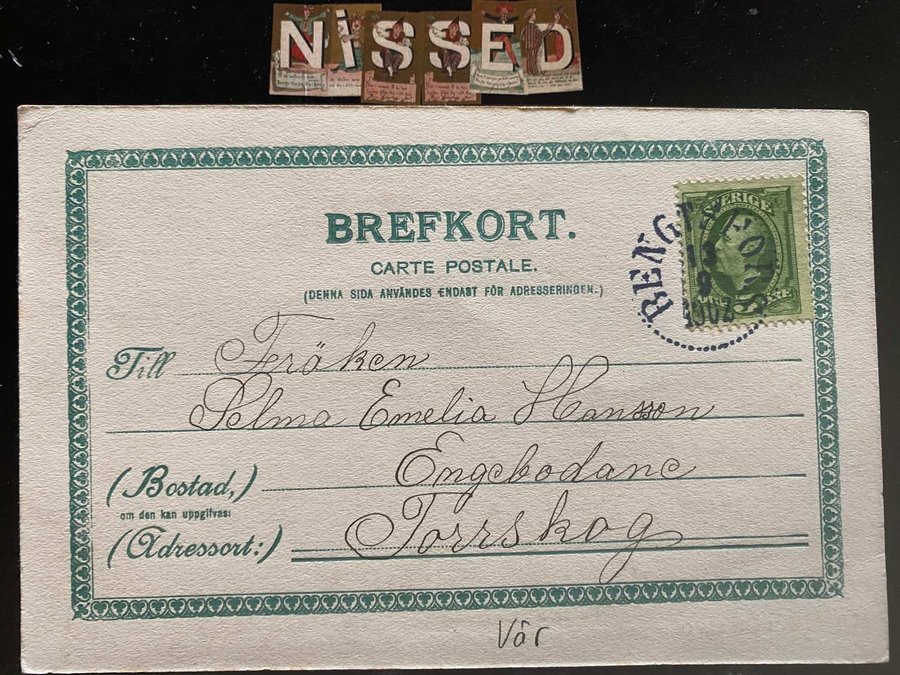 NISSED
BREFKORT.
CARTE POSTALE.
(DENNA SIDA ANVÄNDES ENDAST FÖR ADRESSERINGEN.)
SVERIGE
BENGTSFORS
13
9
1902
Till Fröken
Selma Emelia Hansson
(Bostad,) Engebodane
om den kan uppgifvas:
(Adressort:) Torrskog
Vår